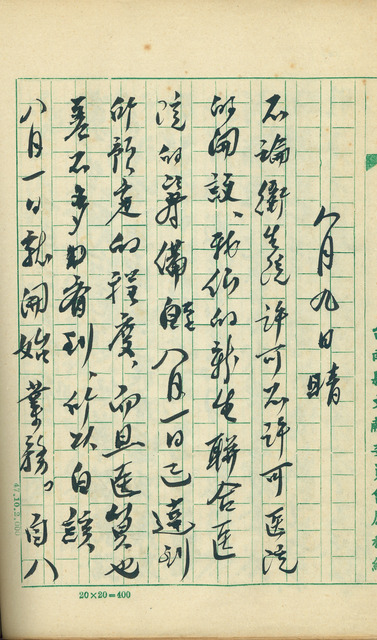 八月九日 晴
不論衛生院許可不許可医院
的開設、我們的新生聯合医
院的籌備自八月一日已達到
所預定的程度、而且医算也
差不多由看到、所以自該
八月一日就開始業務。自八
20×20=400